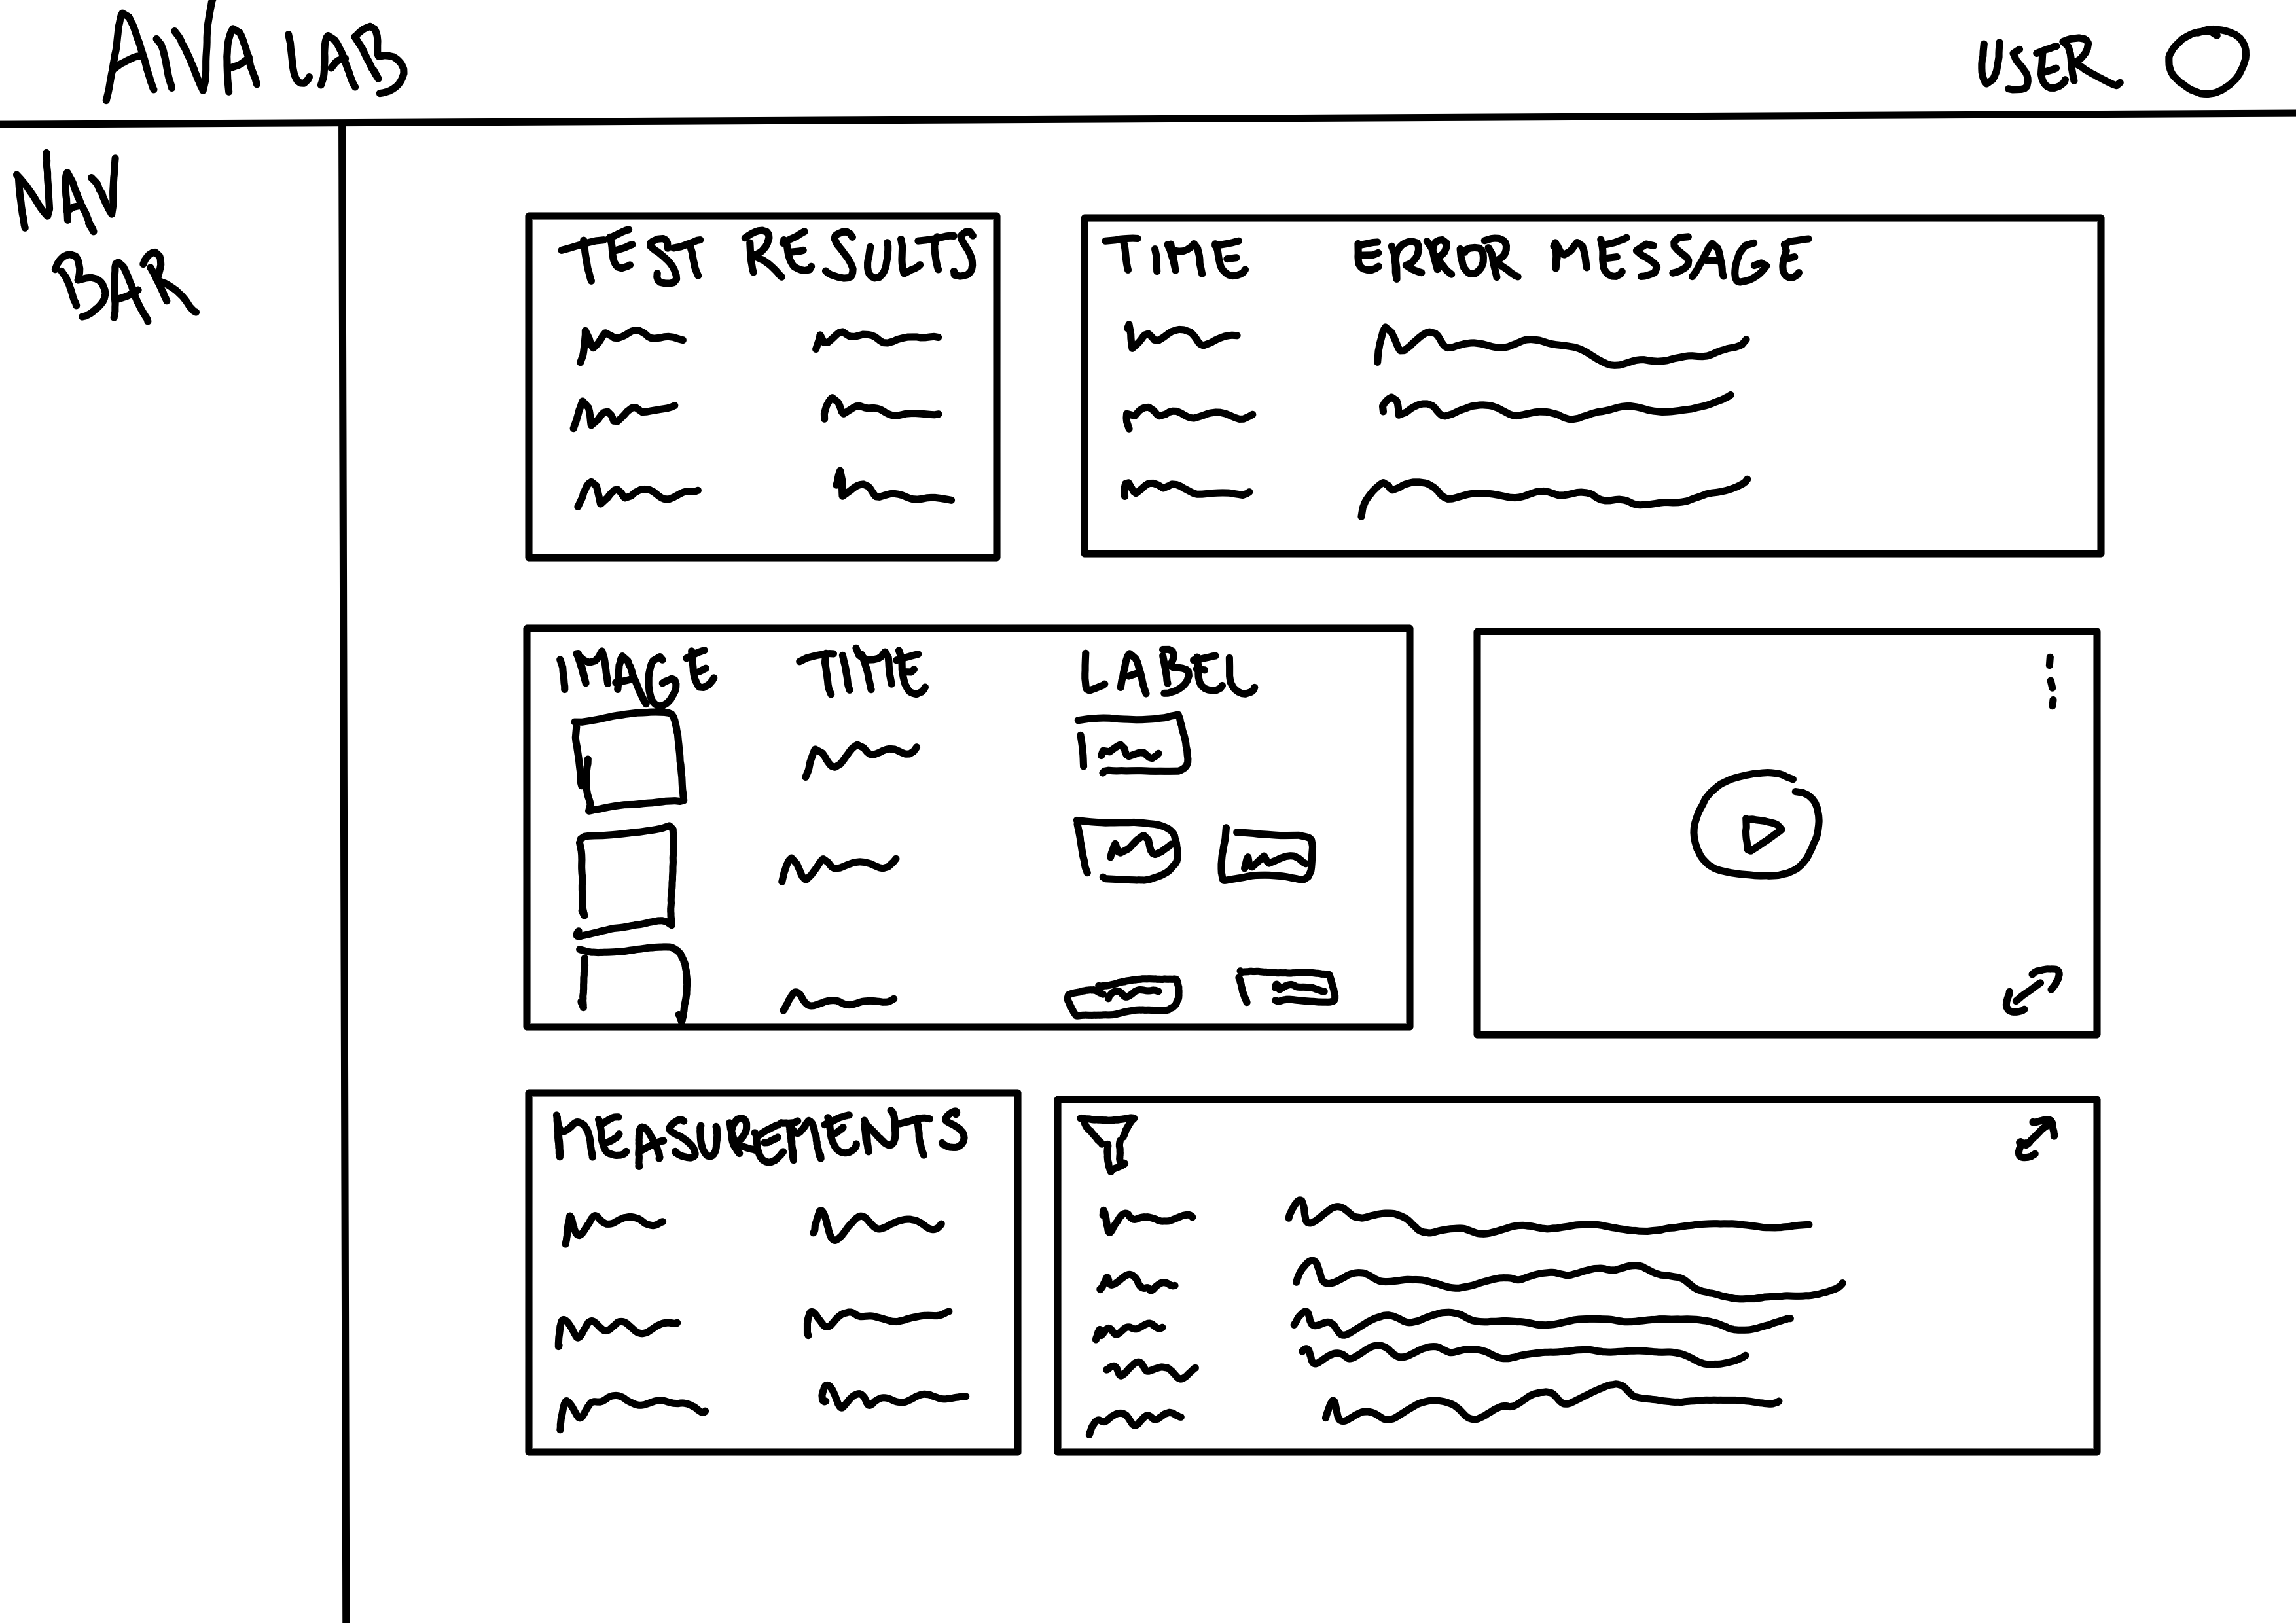 AVA LAB
USER
NAV
BAR
TEST RESULTS
TIME ERROR MESSAGE
IMAGE TIME LABEL
MEASUREMENTS